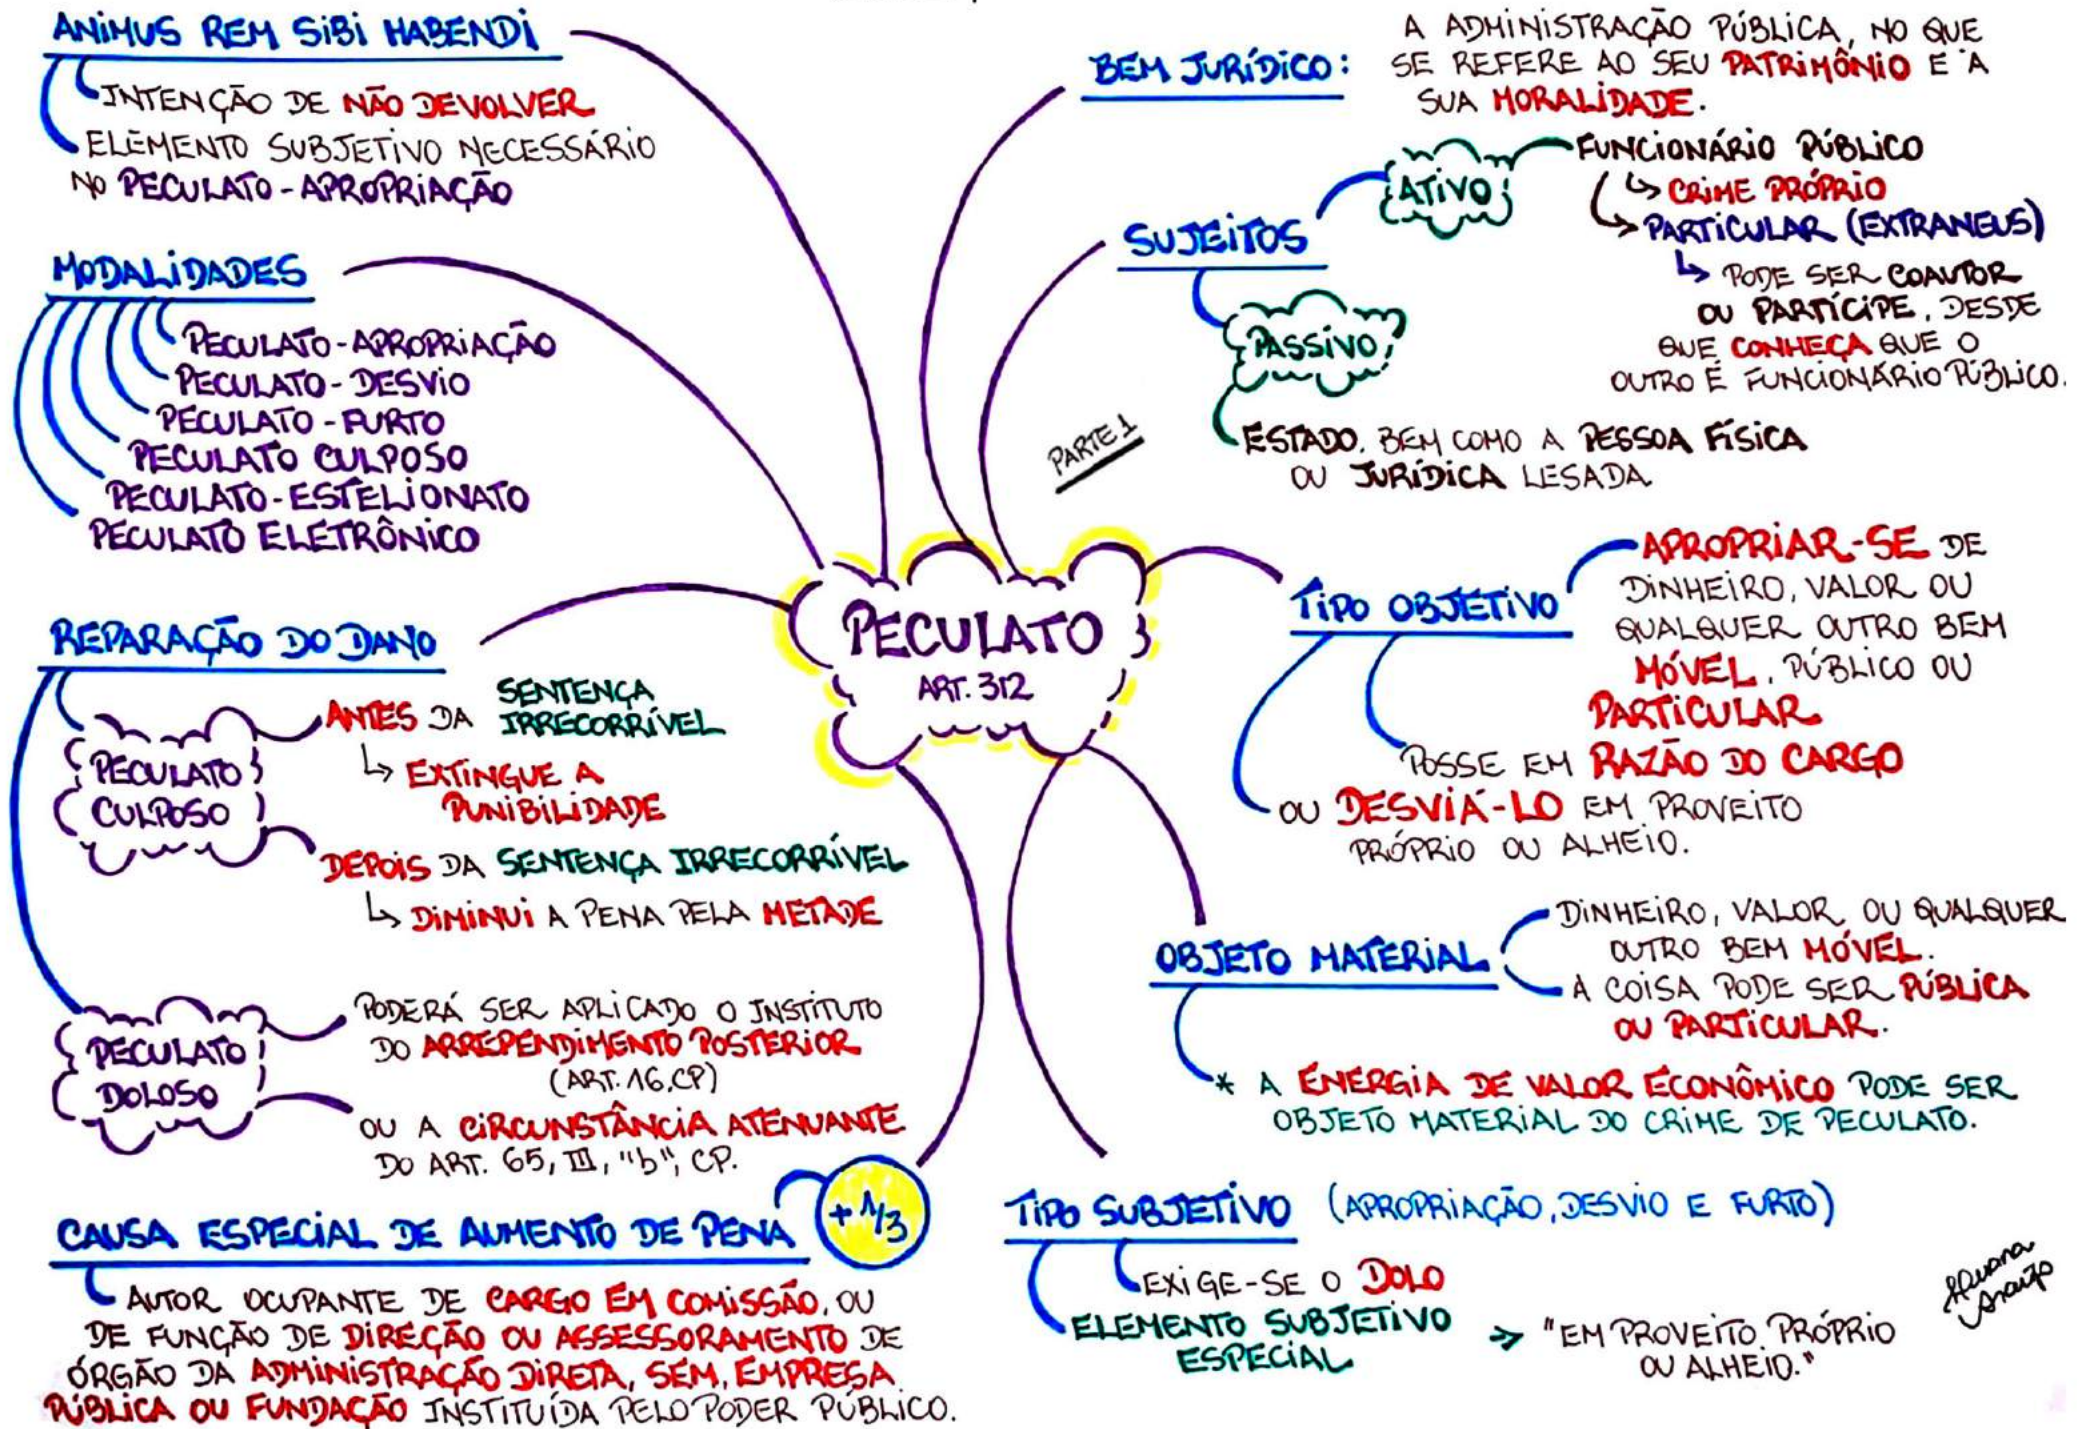 ANIMUS REM SIBI HABENDI
INTENÇÃO DE NÃO DEVOLVER
ELEMENTO SUBJETIVO NECESSÁRIO
NO PECULATO-APROPRIAÇÃO
MODALIDADES
PECULATO-APROPRIAÇÃO
PECULATO-DESVIO
PECULATO-FURTO
PECULATO CULPOSO
PECULATO-ESTELIONATO
PECULATO ELETRÔNICO
REPARAÇÃO DO DANO
PECULATO
CULPOSO
ANTES DA SENTENÇA
IRRECORRÍVEL
↳ EXTINGUE A
PUNIBILIDADE
DEPOIS DA SENTENÇA IRRECORRÍVEL
↳ DIMINUI A PENA PELA METADE
PECULATO
DOLOSO
PODERÁ SER APLICADO O INSTITUTO
DO ARREPENDIMENTO POSTERIOR
(ART. 16, CP)
OU A CIRCUNSTÂNCIA ATENUANTE
DO ART. 65, III, "b", CP.
CAUSA ESPECIAL DE AUMENTO DE PENA
+ 1/3
AUTOR OCUPANTE DE CARGO EM COMISSÃO, OU
DE FUNÇÃO DE DIREÇÃO OU ASSESSORAMENTO DE
ÓRGÃO DA ADMINISTRAÇÃO DIRETA, SEM, EMPRESA
PÚBLICA OU FUNDAÇÃO INSTITUÍDA PELO PODER PÚBLICO.
PECULATO
ART. 312
PARTE 1
BEM JURÍDICO:
A ADMINISTRAÇÃO PÚBLICA, NO QUE
SE REFERE AO SEU PATRIMÔNIO E À
SUA MORALIDADE.
SUJEITOS
ATIVO
FUNCIONÁRIO PÚBLICO
↳ CRIME PRÓPRIO
PARTICULAR (EXTRANEUS)
↳ PODE SER COAUTOR
OU PARTÍCIPE, DESDE
QUE CONHEÇA QUE O
OUTRO É FUNCIONÁRIO PÚBLICO.
PASSIVO
ESTADO, BEM COMO A PESSOA FÍSICA
OU JURÍDICA LESADA
TIPO OBJETIVO
APROPRIAR-SE DE
DINHEIRO, VALOR OU
QUALQUER OUTRO BEM
MÓVEL, PÚBLICO OU
PARTICULAR
POSSE EM RAZÃO DO CARGO
OU DESVIÁ-LO EM PROVEITO
PRÓPRIO OU ALHEIO.
OBJETO MATERIAL
DINHEIRO, VALOR OU QUALQUER
OUTRO BEM MÓVEL.
A COISA PODE SER PÚBLICA
OU PARTICULAR.
* A ENERGIA DE VALOR ECONÔMICO PODE SER
OBJETO MATERIAL DO CRIME DE PECULATO.
TIPO SUBJETIVO (APROPRIAÇÃO, DESVIO E FURTO)
EXIGE-SE O DOLO
ELEMENTO SUBJETIVO
ESPECIAL
→ "EM PROVEITO PRÓPRIO
OU ALHEIO."
Araújo